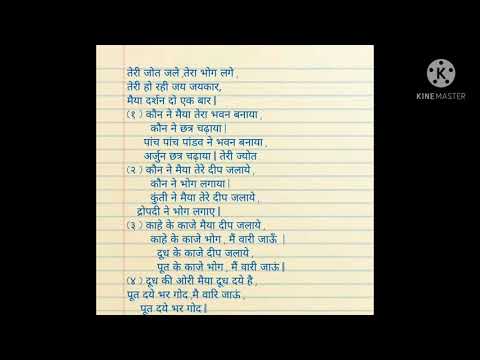 तेरी जोत जले ,तेरा भोग लगे ,
तेरी हो रही जय जयकार,
मैया दर्शन दो एक बार|
(१ ) कौन ने मैया तेरा भवन बनाया ,
कौन ने छत्र चढ़ाया |
पांच पांच पांडव ने भवन बनाया ,
अर्जुन छत्र चढ़ाया | तेरी ज्योत
(२ ) कौन ने मैया तेरे दीप जलाये ,
कौन ने भोग लगाया |
कुंती ने मैया तेरे दीप जलाये ,
द्रोपदी ने भोग लगाए |
(३ ) काहे के काजे मैया दीप जलाये ,
काहे के काजे भोग , मैं वारी जाऊँ |
दूध के काजे दीप जलाये ,
पूत के काजे भोग , मैं वारी जाऊं |
(४ ) दूध की ओरी मैया दूध दये है ,
पूत दये भर गोद ,मै वारि जाऊं ,
पूत दये भर गोद |
K
KINEMASTER